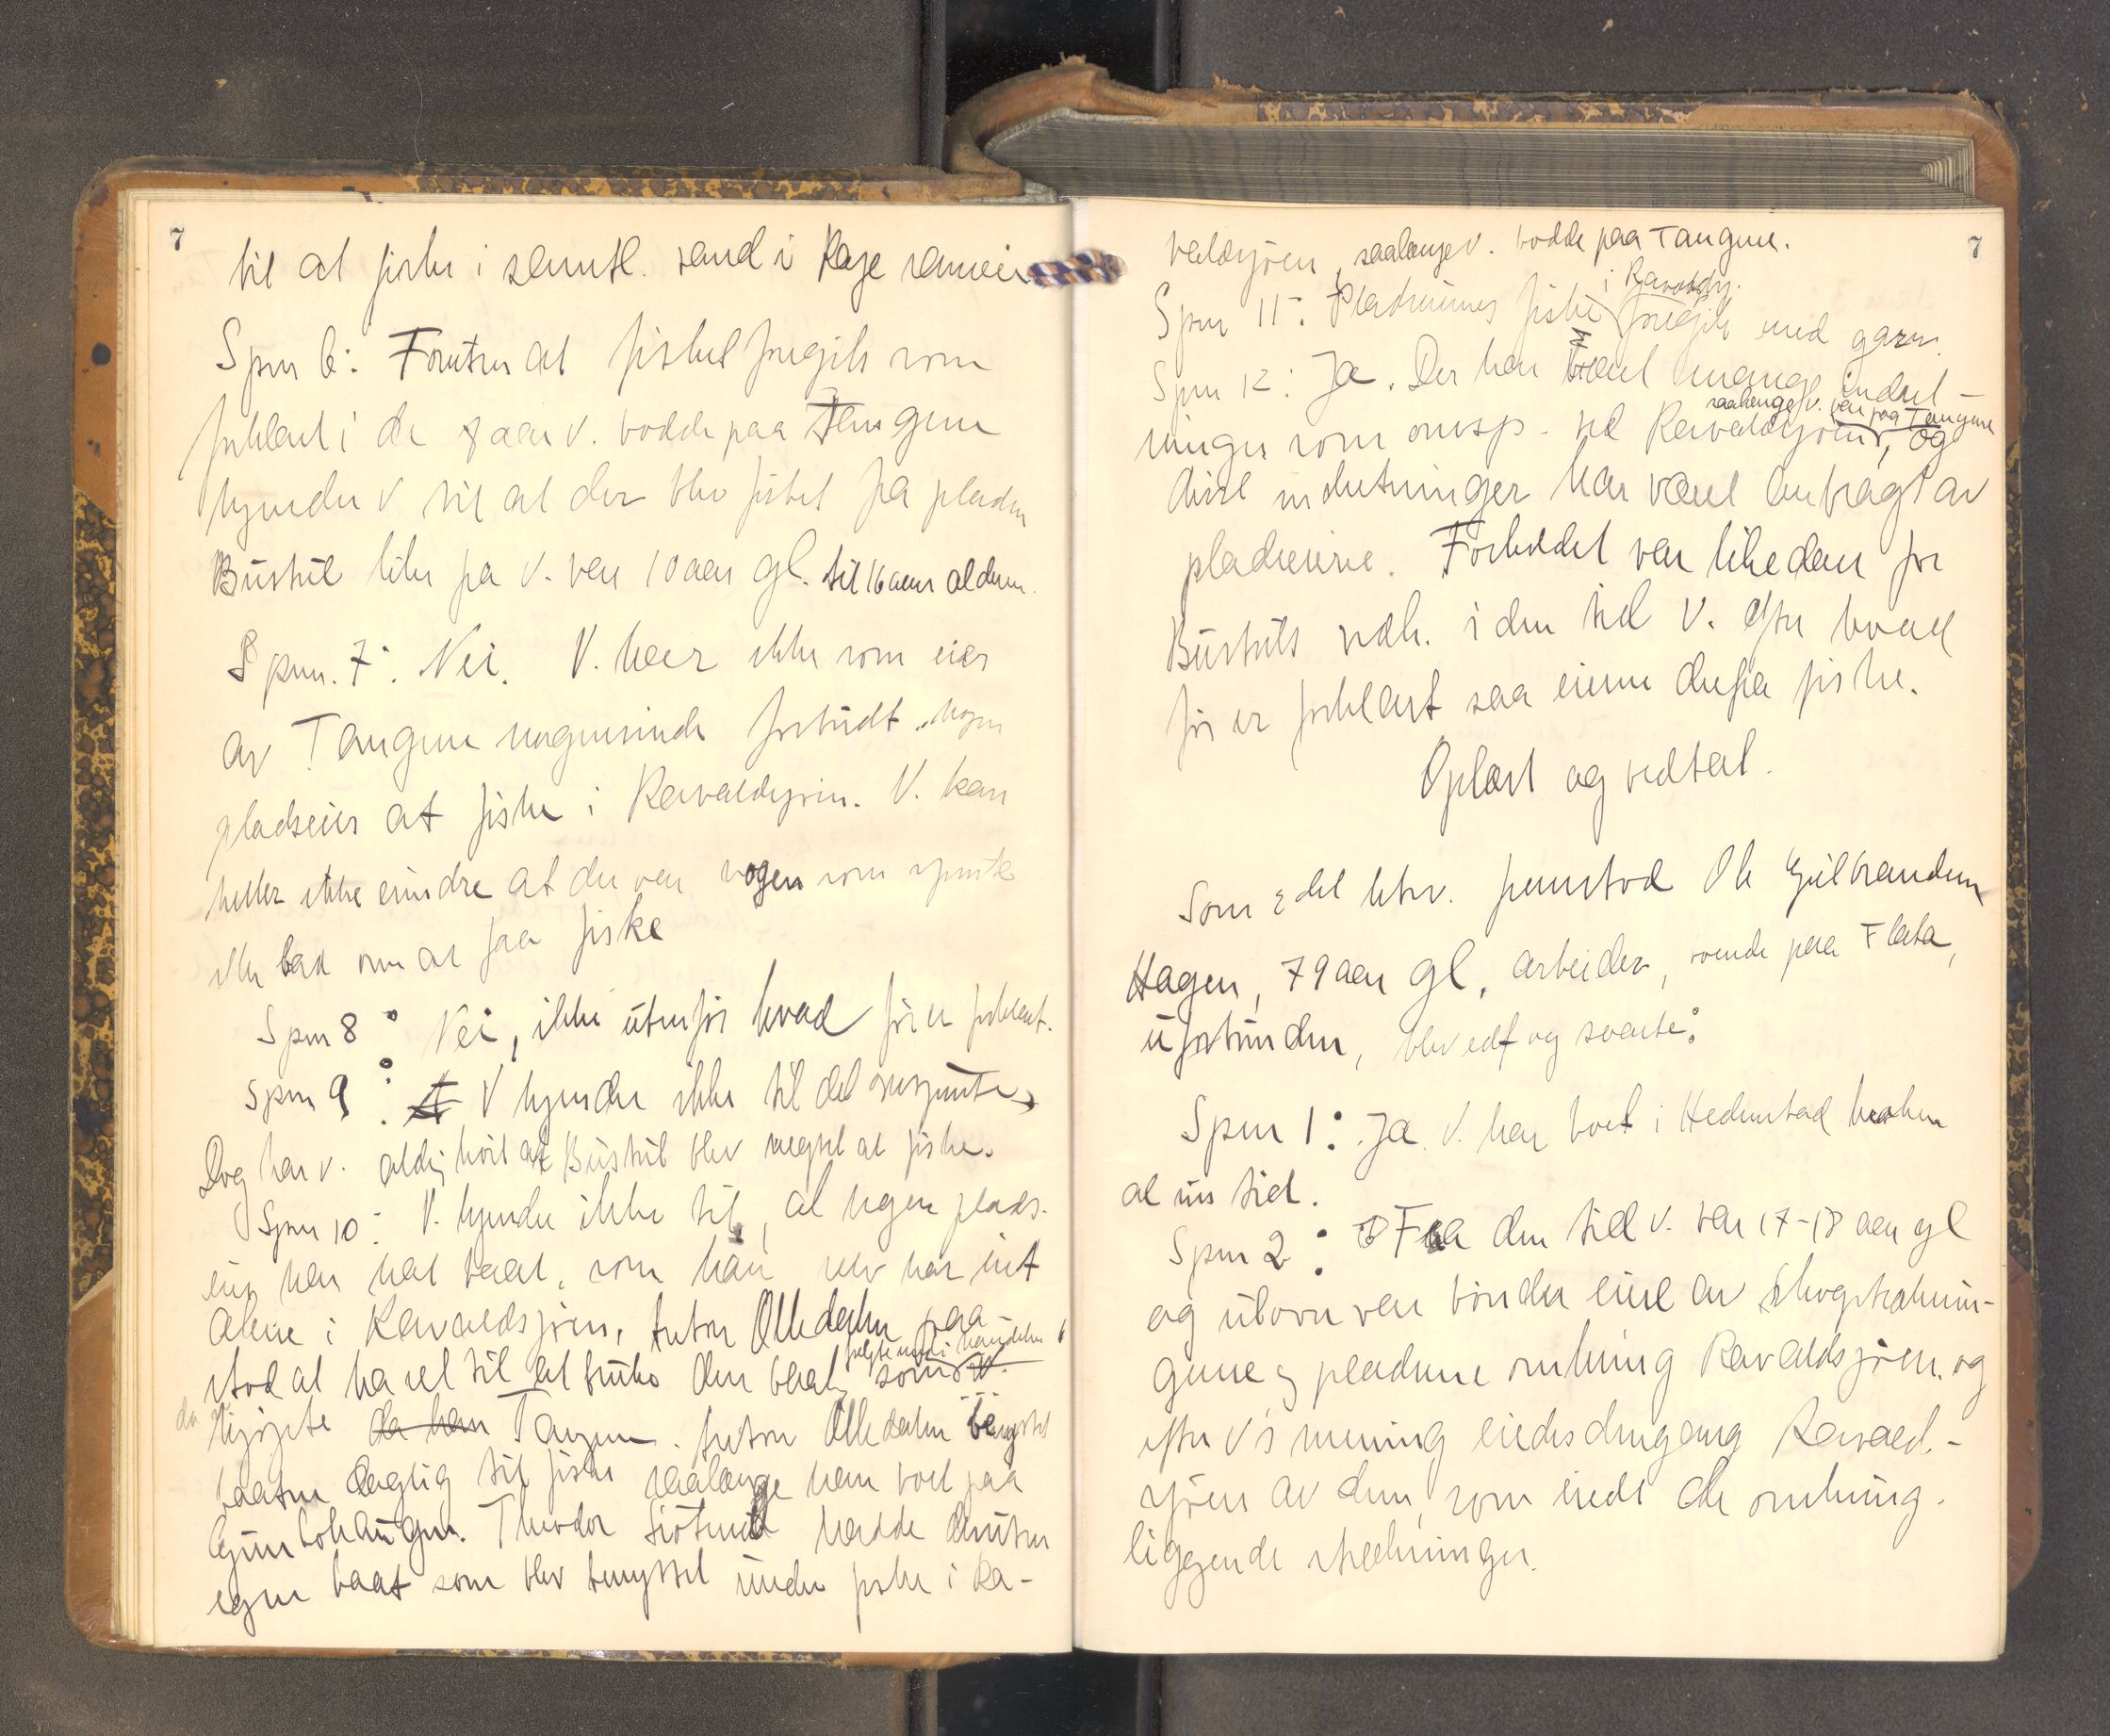 7
til at fiske i samtl. vand i
Spm 6: Foruten at fisket foregik som
forklart i de 8 aar v. bodde paa Tangen
kjender v til at der blev fisket fra pladsen
Büstul like fra v. var 10 aar gl. til 16 aars alderen.
Spm. 7: Nei. V. har ikke som eier
av Tangen nogensinde forbudt nogen
pladseier at fiske i Ravaldsjøen. V. kan
heller ikke erindre at der var nogen som spurte
eller bad om at faa fiske
Spm 8: Nei, ikke utenfor hvad før er forklart.
Spm 9: V kjender ikke til det omspurte,
Dog har v. aldrig hört at Büstul blev negtet at fiske.
Spm 10: V. kjender ikke til, at nogen plads-
eier har hat baat, som han selv har eiet
alene i Ravaldsjöen, Olledalen paa-
stod at ha ret til at bruke den baat, som
fulgte med i handelen
da v. kjøpte da han Tangen. Olledalen benyttet
baaten daglig til fiske saalænge han bod paa
Gunbolhaugen. Theodor hadde desuten
egen baat som blev benyttet under fiske i Ra-
7
valdsjöen, saalænge v. bodde paa Tangen.
i Ravaldsj.
Spm 11: Pladseiernes fiske foregik med garn.
Spm 12: Ja. Der har været mange indret-
saalænge v. var paa Tangen
ninger som omsp. ved Ravaldsjöen, og
disse indretninger har været anbragt av
pladseierne. Forholdet var likedan for
Büstuls vedk. i den tid V. efter hvad
før er forklart saa eieren derfra fiske.
Oplæst og vedtat.
Som 2det vidne fremstod Ole Gulbrandsen
Hagen, 79 aar gl, arbeider, boende paa Flata,
uforbunden, blev edf og svarte:
Spm 1: Ja. V. har boet i Hedenstad trakten
al sin tid.
Spm 2: Fra den tid v. var 17-18 aar gl
og utover var bönder eiere av skogstræknin-
gene og pladsene omkring Ravaldsjöen. og
efter v's mening eiedes dengang Ravald-
sjöen av dem, som eiede de omkring-
liggende strækninger.